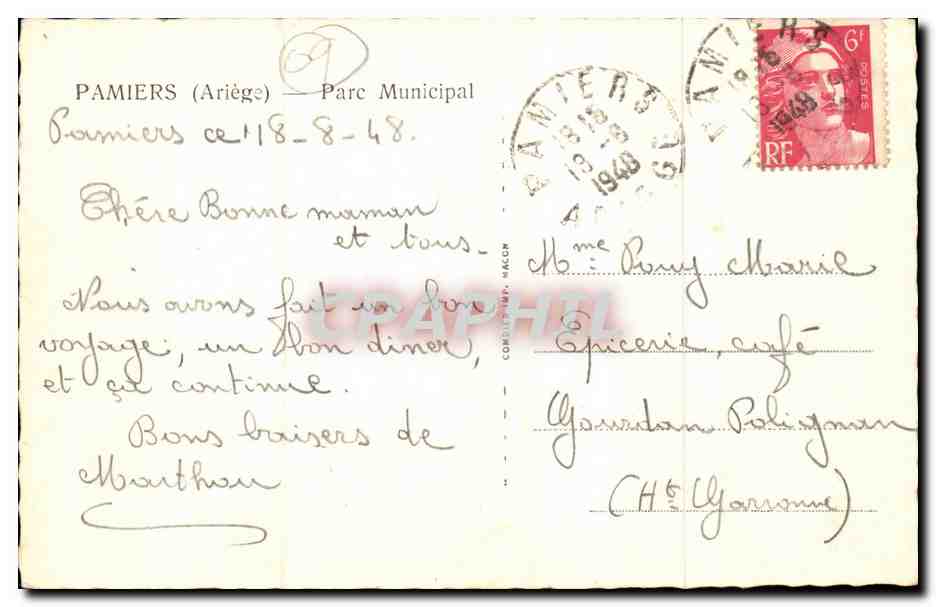 09
PAMIERS (Ariège) — Parc Municipal
Pamiers ce 18-8-48.
Chére Bonne maman
et tous_
Nous avons fait un bon
voyage, un bon diner,
et ça continue.
Bons baisers de
Marthou
COMBIER IMP. MACON
CPAPHIL
PAMIERS
18 18
18 -8
1948
PAMIERS
1948
6F
POSTES
RF
Mme Pouy Marie
Epicerie, café
Gourdan Polignan
(Hte Garronne)